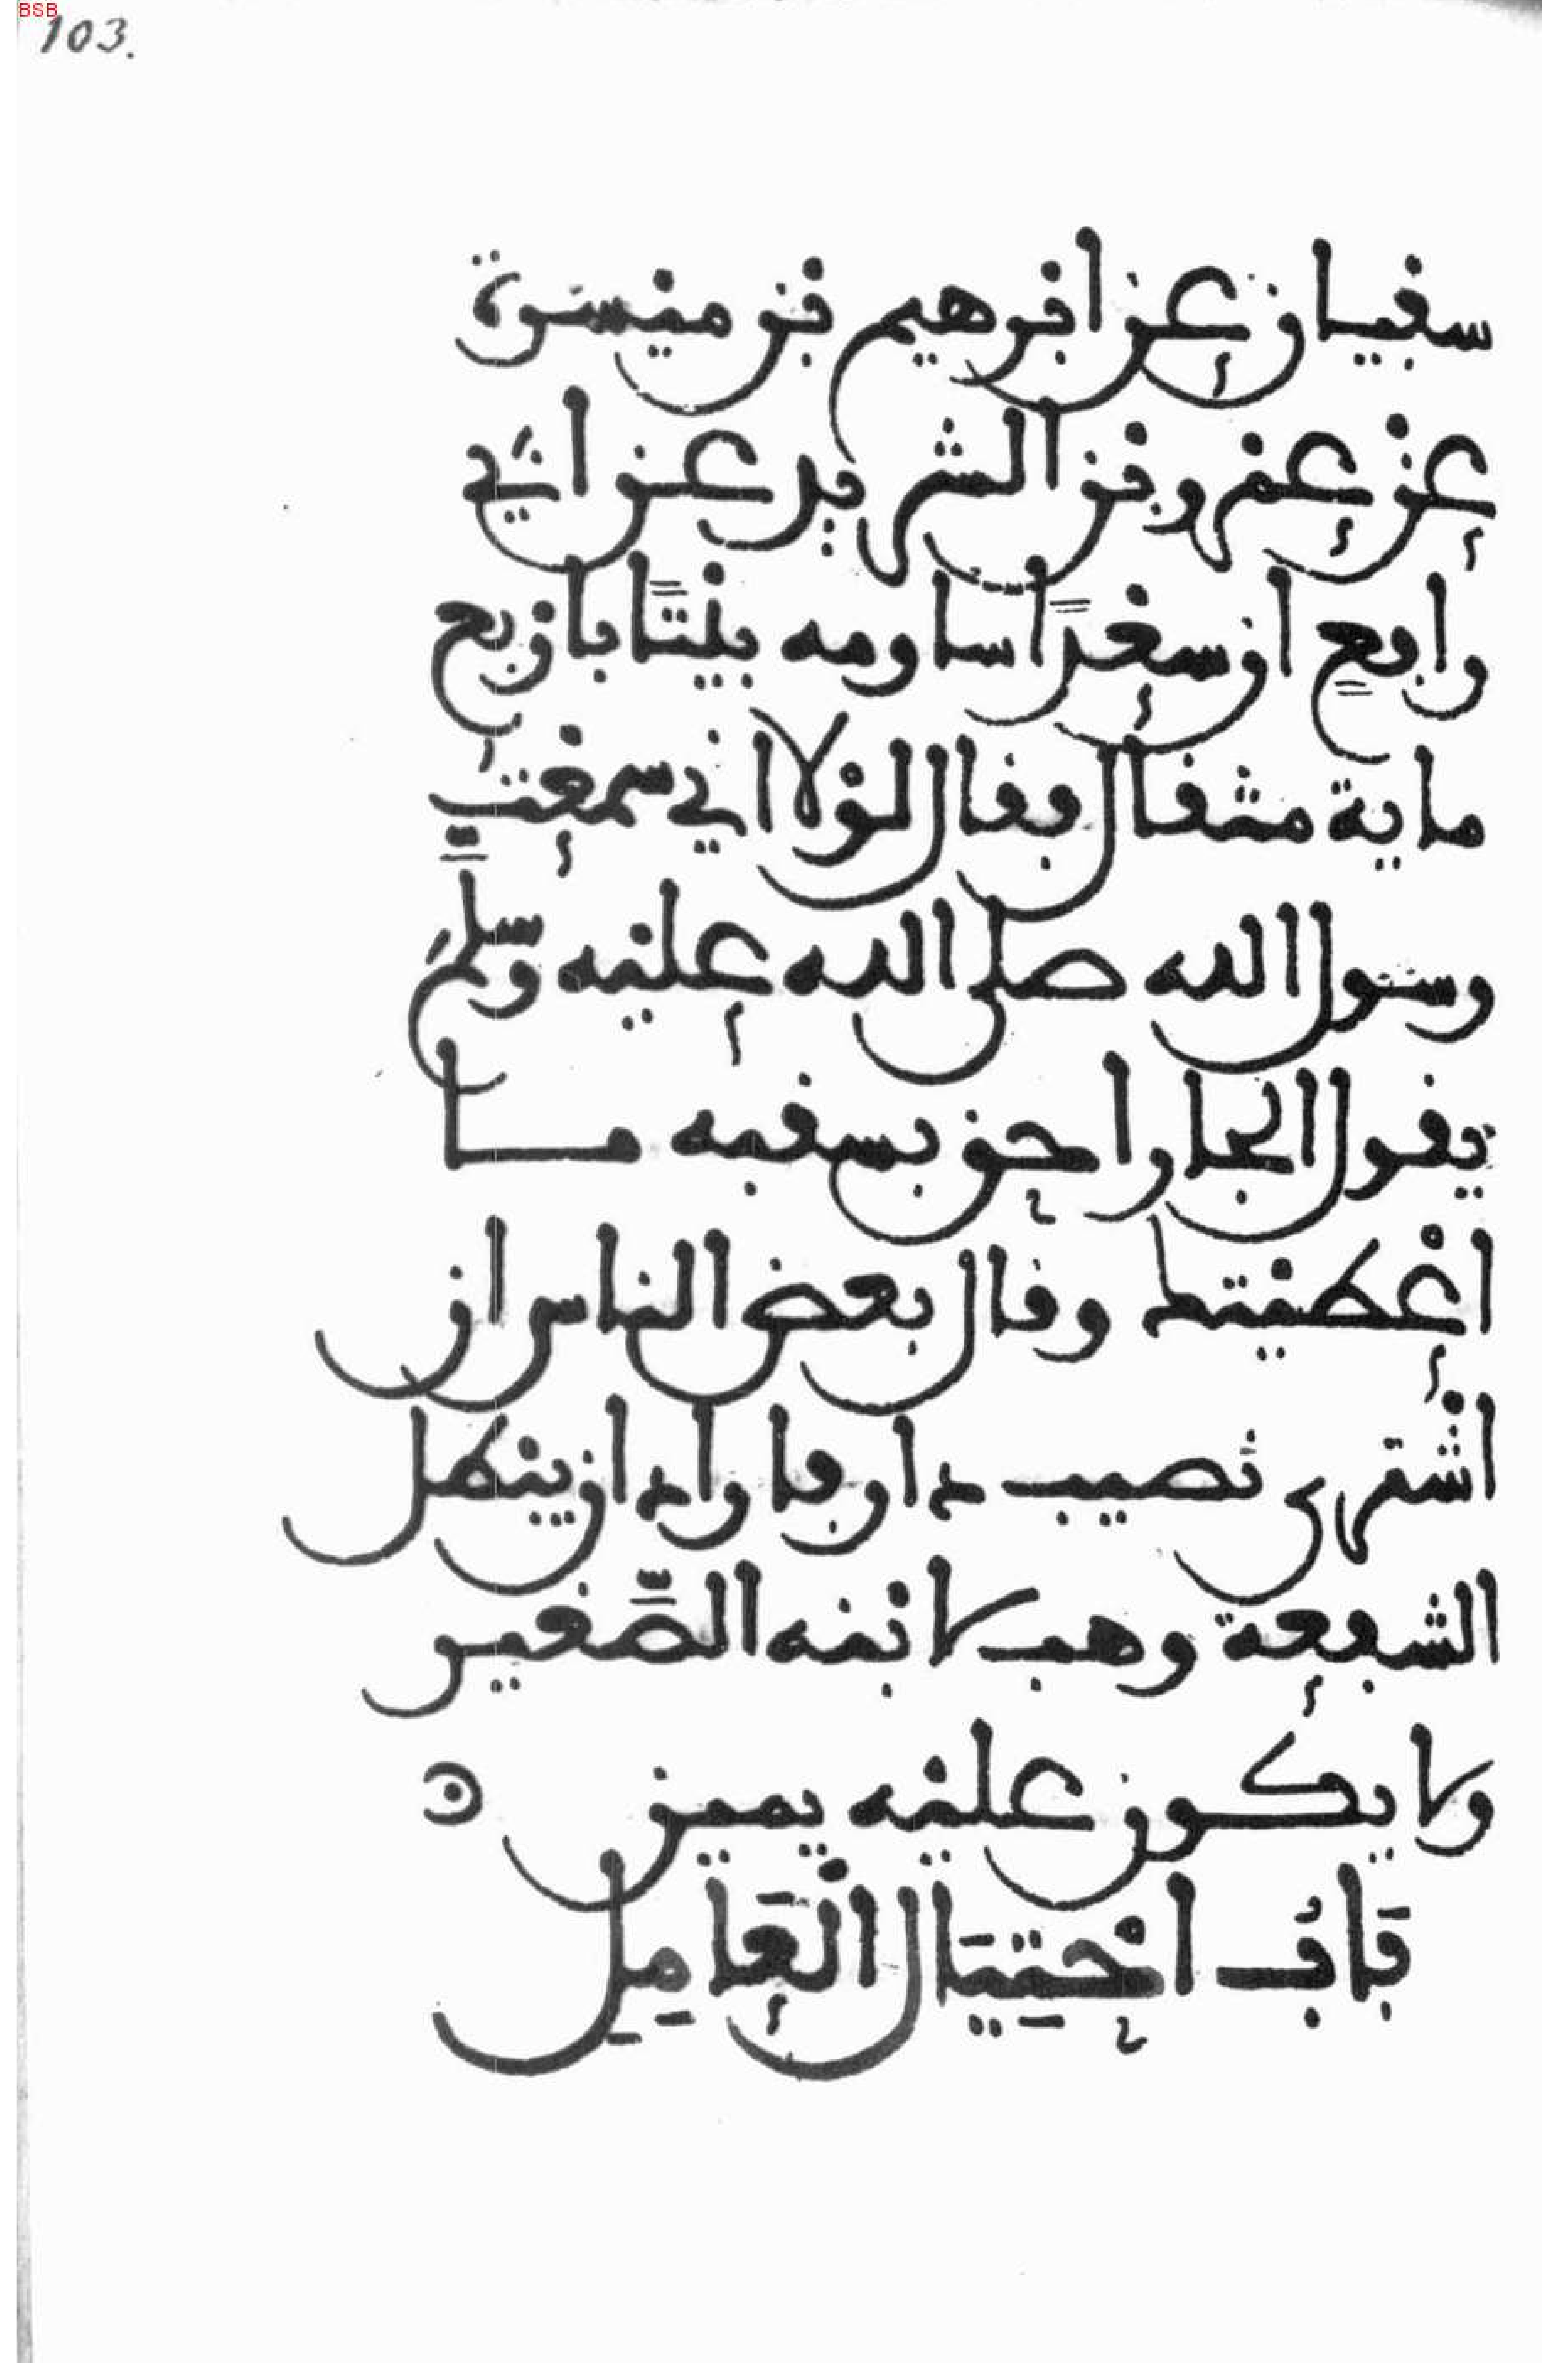 BSB
103.
سفيان عن ابرهيم بن ميسرة
عن عمرو بن الشريد عن ابي
رافع ان سعدا ساومه بيتا باربع
ماية مثقال فقال لولا اني سمعت
رسول الله صلى الله عليه وسلم
يقول الجار احق بسقبه ما
اعطيتك وقال بعض الناس ان
اشترى نصيب دار فاراد ان يبطل
الشفعة وهب لابنه الصغير
ولا يكون عليه يمين
بَابُ احْتِيَالِ الْعَامِلِ